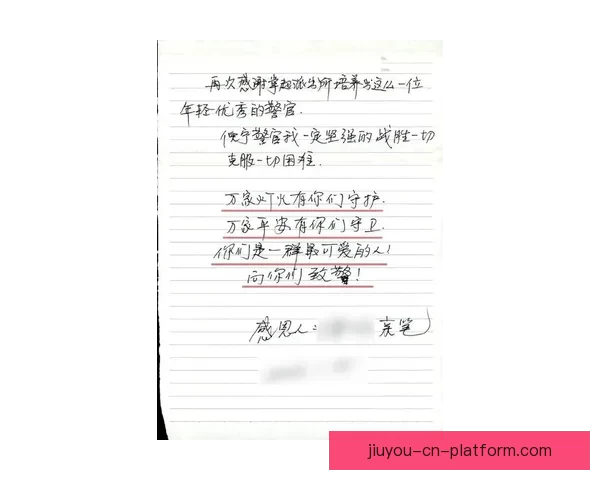 再次感谢掌起派出所培养出这么一位
年轻优秀的警官.
使宁警官我一定坚强的战胜一切
克服一切困难.
万家灯火有你们守护.
万家平安有你们守卫.
你们是一群最可爱的人!
向你们致警!
感恩人: 亲笔
jiuyou-cn-platform.com